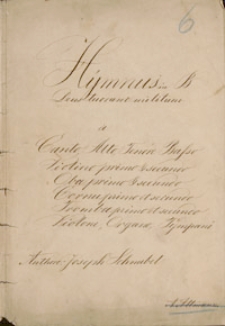 6
Hymnus in B
Deus tuorum militum
a
Canto Alto Tenore Basso
Violino primo e secundo
Oboa primo e secundo
Cornu primo et secundo
Tromba primo et secundo
Violone, Organo, Tÿmpani
Authore Joseph Schnabel